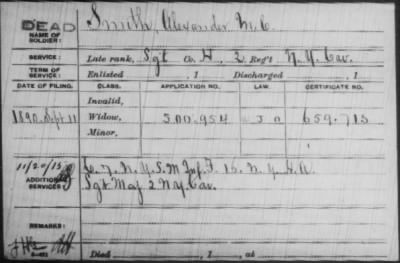 DEAD
NAME OF SOLDIER: Smith, Alexander McC.
SERVICE: Late rank, Sgt Co. H, 2 Reg't N.Y. Cav.
TERM OF SERVICE: Enlisted , 1 Discharged , 1
DATE OF FILING. CLASS. APPLICATION NO. LAW. CERTIFICATE NO.
Invalid,
1890, Sept 11 Widow, 500.954 659.715
Minor,
11/20/15 C. 7. N.Y.S.M. Inf. F. 15. N.Y. H.A.
ADDITIONAL SERVICES: Sgt Maj 2 N.Y. Cav.
REMARKS:
Died , 1 , at